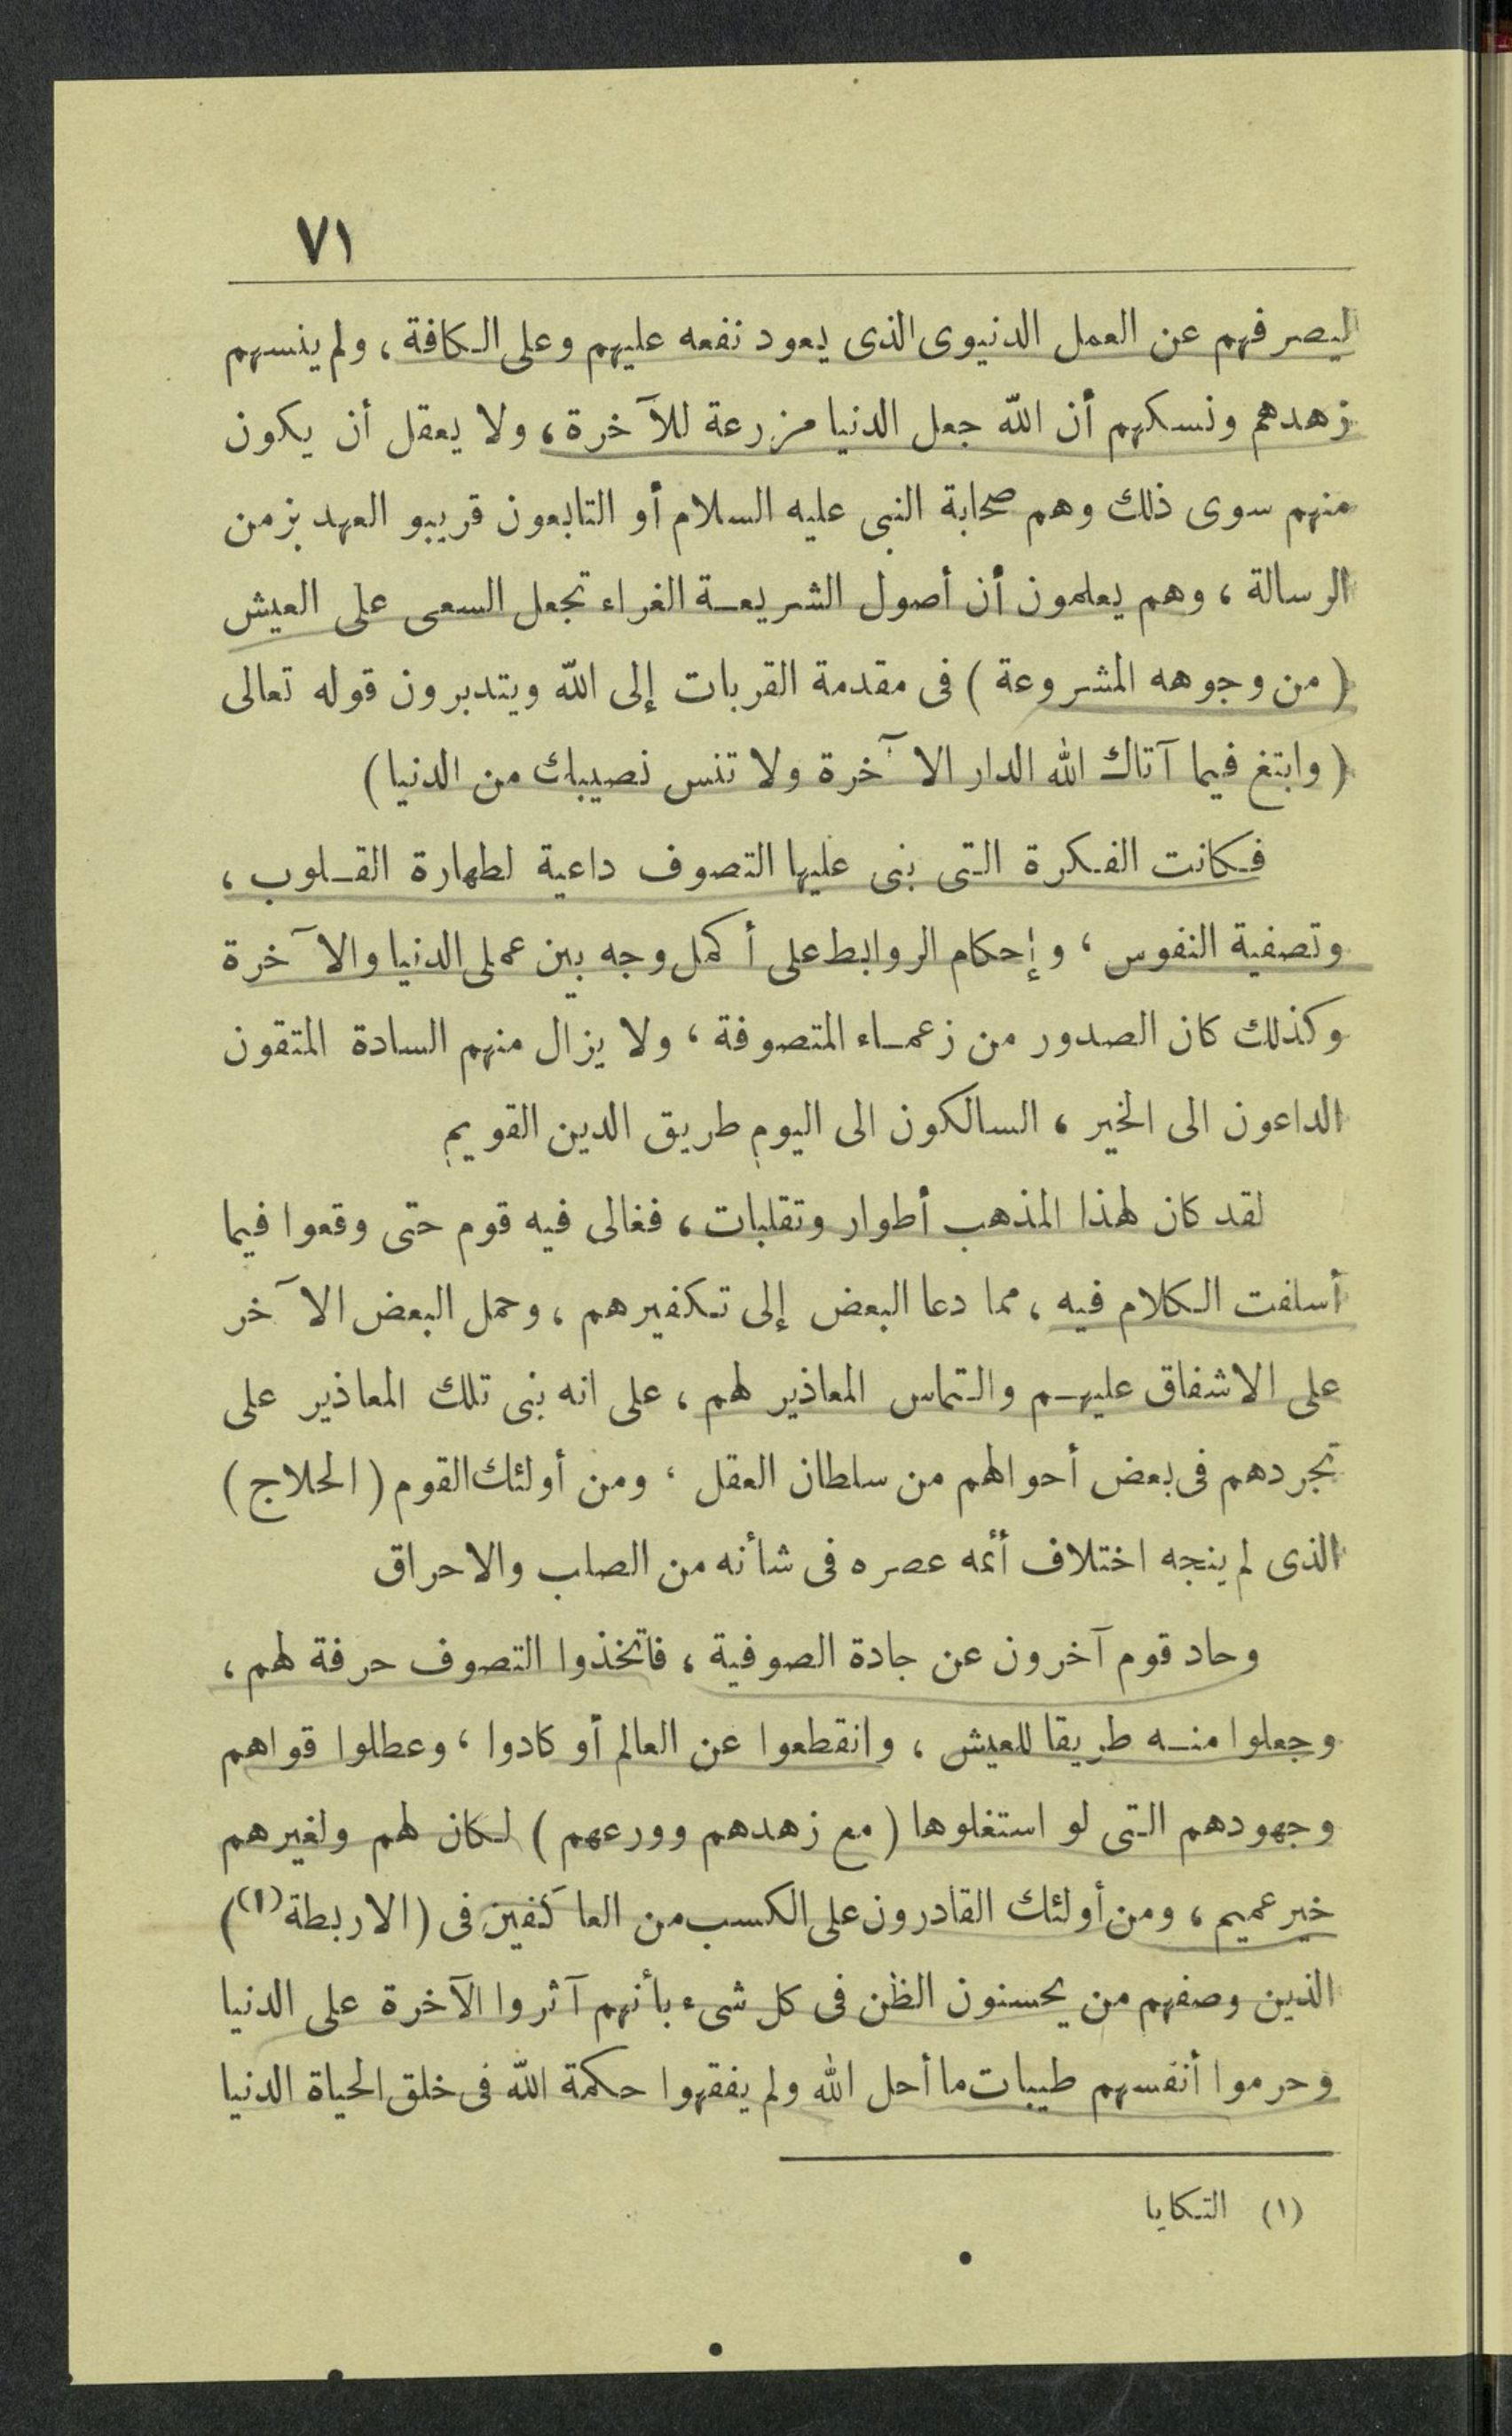 ٧١
ليصرفهم عن العمل الدنيوى الذى يعود نفعه عليهم وعلى الكافة، ولم ينسهم
زهدهم ونسكهم أن الله جعل الدنيا مزرعة للآخرة، ولا يعقل أن يكون
منهم سوى ذلك وهم صحابة النبى عليه السلام أو التابعون قريبو العهد بزمن
الرسالة، وهم يعلمون أن أصول الشريعة الغراء تجعل السعى على العيش
(من وجوهه المشروعة) فى مقدمة القربات إلى الله ويتدبرون قوله تعالى
(وابتغ فيما آتاك الله الدار الآخرة ولا تنس نصيبك من الدنيا)
فكانت الفكرة التى بنى عليها التصوف داعية لطهارة القلوب،
وتصفية النفوس، وإحكام الروابط على أكمل وجه بين عملى الدنيا والآخرة
وكذلك كان الصدور من زعماء المتصوفة، ولا يزال منهم السادة المتقون
الداعون الى الخير، السالكون الى اليوم طريق الدين القويم
لقد كان لهذا المذهب أطوار وتقلبات، فغالى فيه قوم حتى وقعوا فيما
أسلفت الكلام فيه، مما دعا البعض إلى تكفيرهم، وحمل البعض الآخر
على الاشفاق عليهم والتماس المعاذير لهم، على انه بنى تلك المعاذير على
تجردهم فى بعض أحوالهم من سلطان العقل، ومن أولئك القوم (الحلاج)
الذى لم ينجه اختلاف أئمه عصره فى شأنه من الصلب والاحراق
وحاد قوم آخرون عن جادة الصوفية، فاتخذوا التصوف حرفة لهم،
وجعلوا منه طريقا للعيش، وانقطعوا عن العالم أو كادوا، وعطلوا قواهم
وجهودهم التى لو استغلوها (مع زهدهم وورعهم) لكان لهم ولغيرهم
خير عميم، ومن أولئك القادرون على الكسب من العاكفين فى (الاربطة(١))
الذين وصفهم من يحسنون الظن فى كل شىء بأنهم آثروا الآخرة على الدنيا
وحرموا أنفسهم طيبات ما أحل الله ولم يفقهوا حكمة الله فى خلق الحياة الدنيا
(١) التكايا